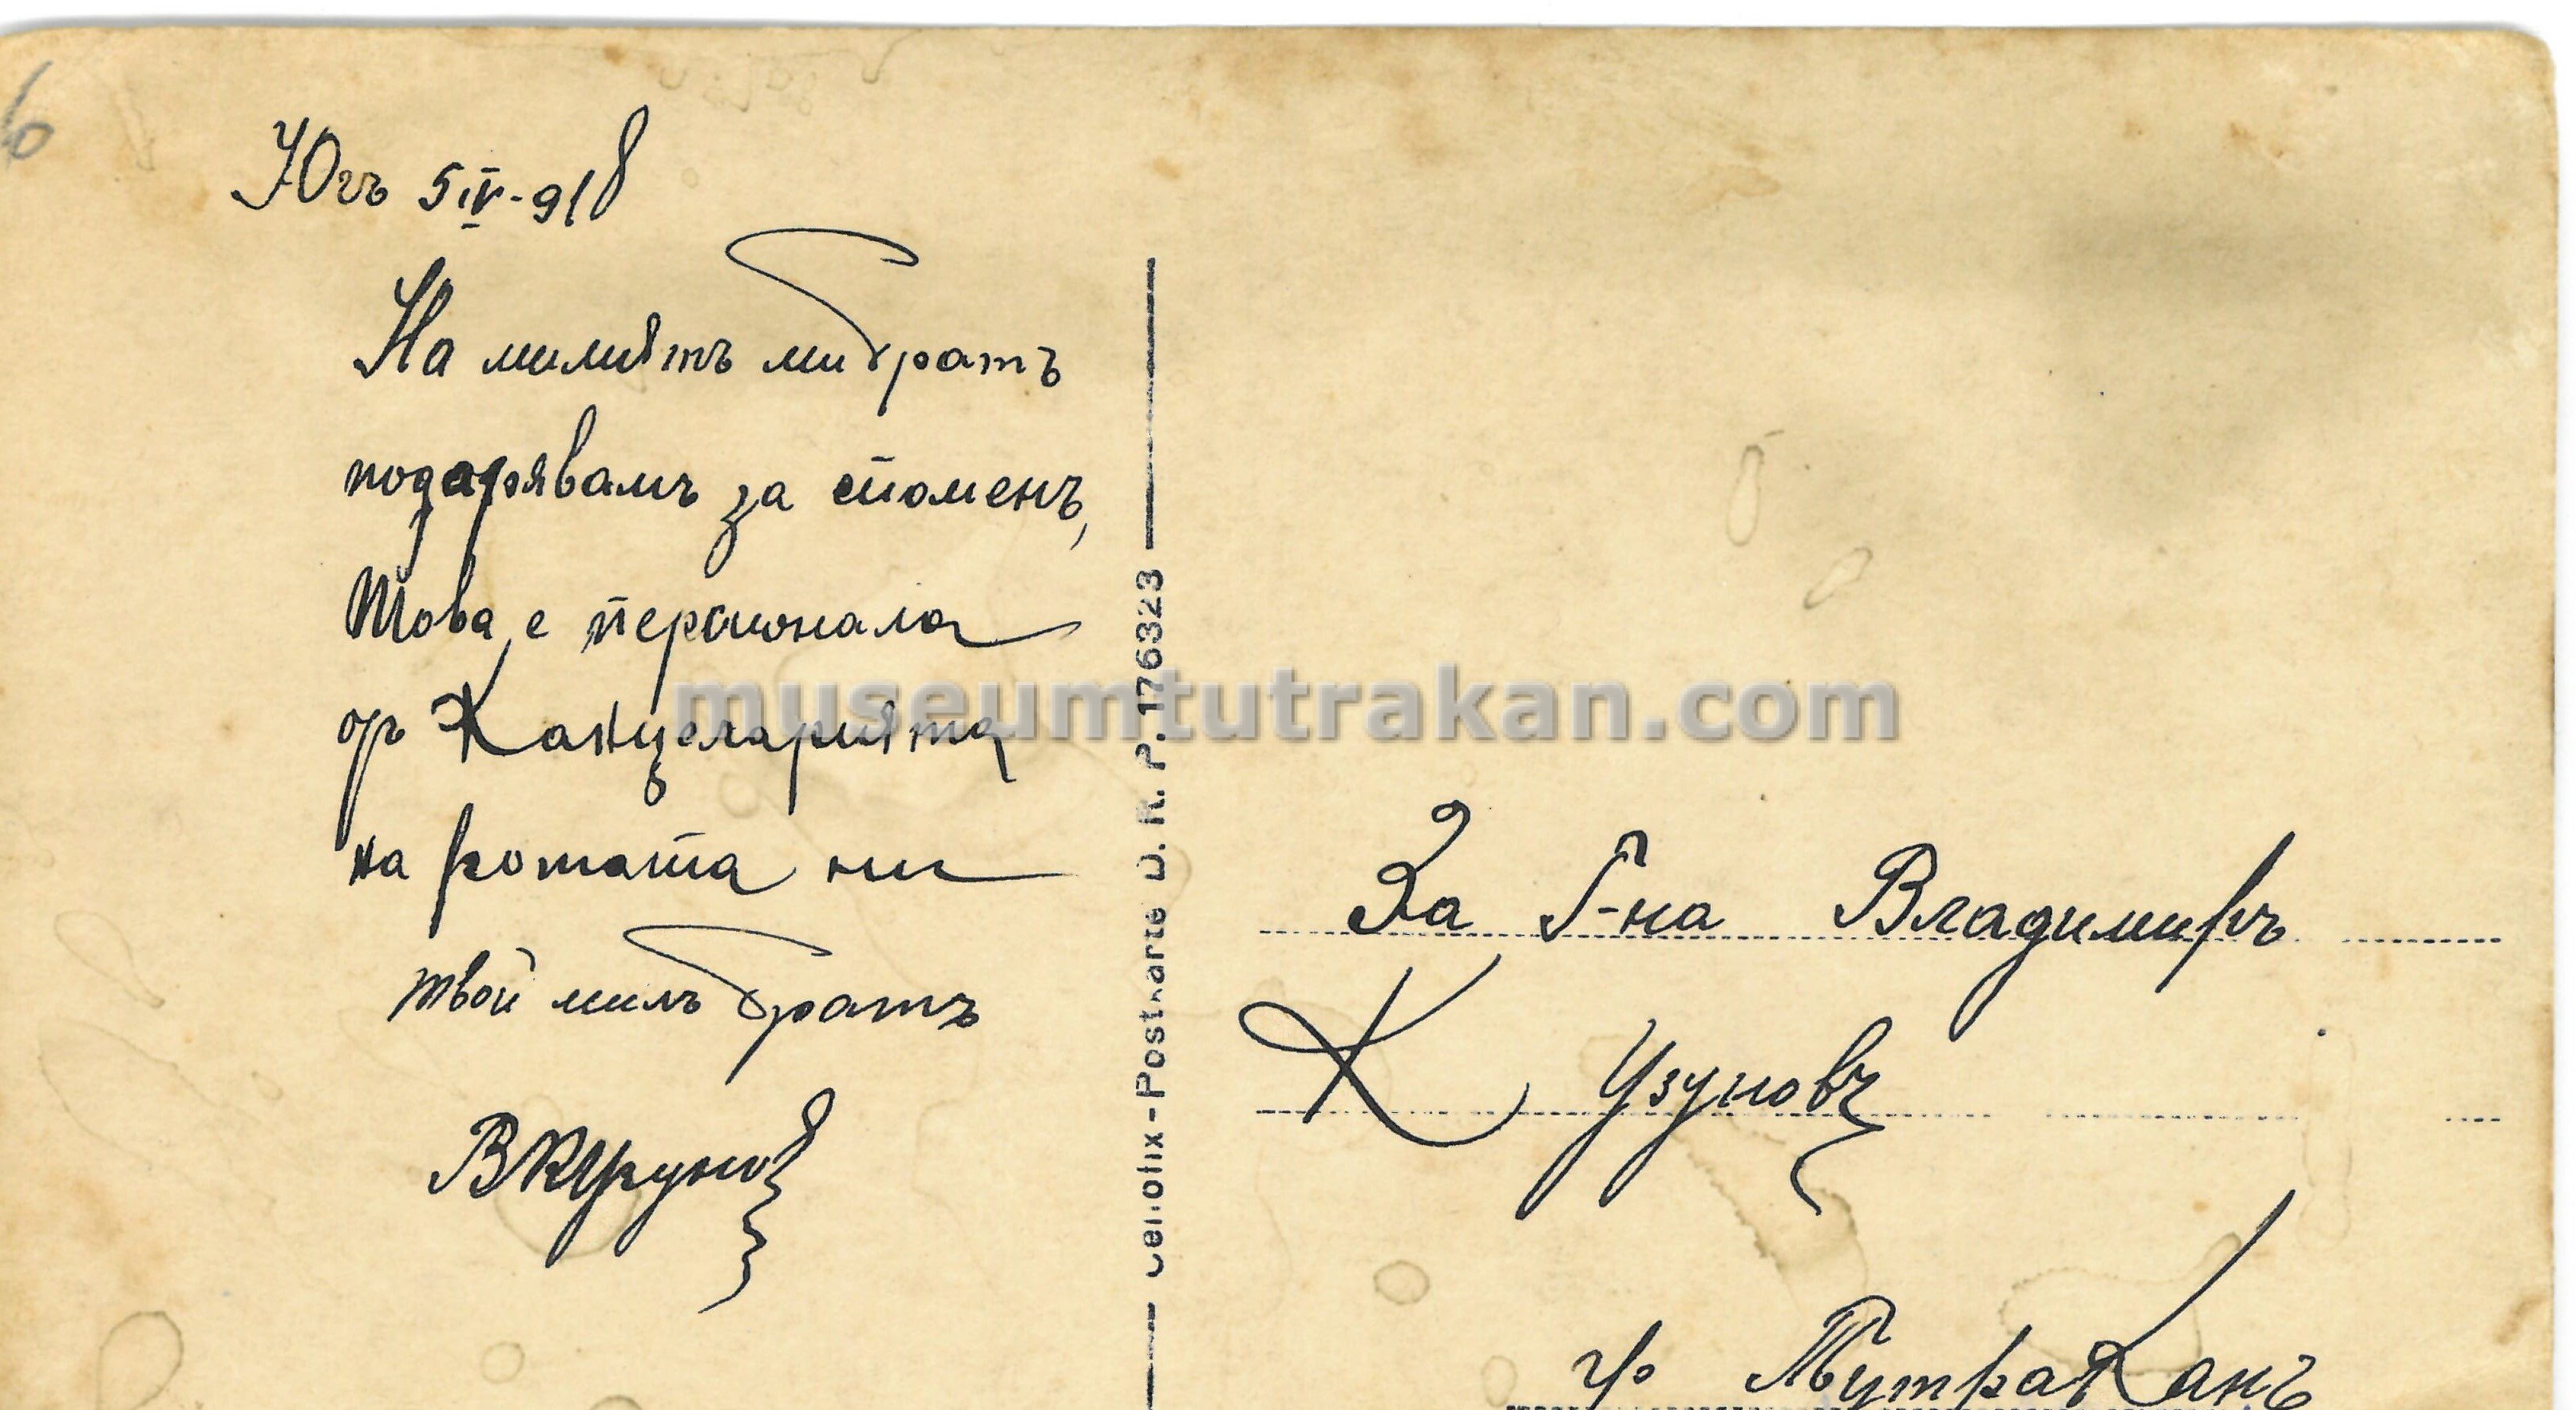 Югъ 5 IV-918
На милиятъ ми братъ
подарявамъ за споменъ,
Това е персонала
отъ Канцеларията
на ротата ни
твой милъ братъ
В К Узуновъ
Postkarte D. R. P. 176323
museumtutrakan.com
За Г-на Владимиръ
К Узуновъ
гр Тутраканъ
6